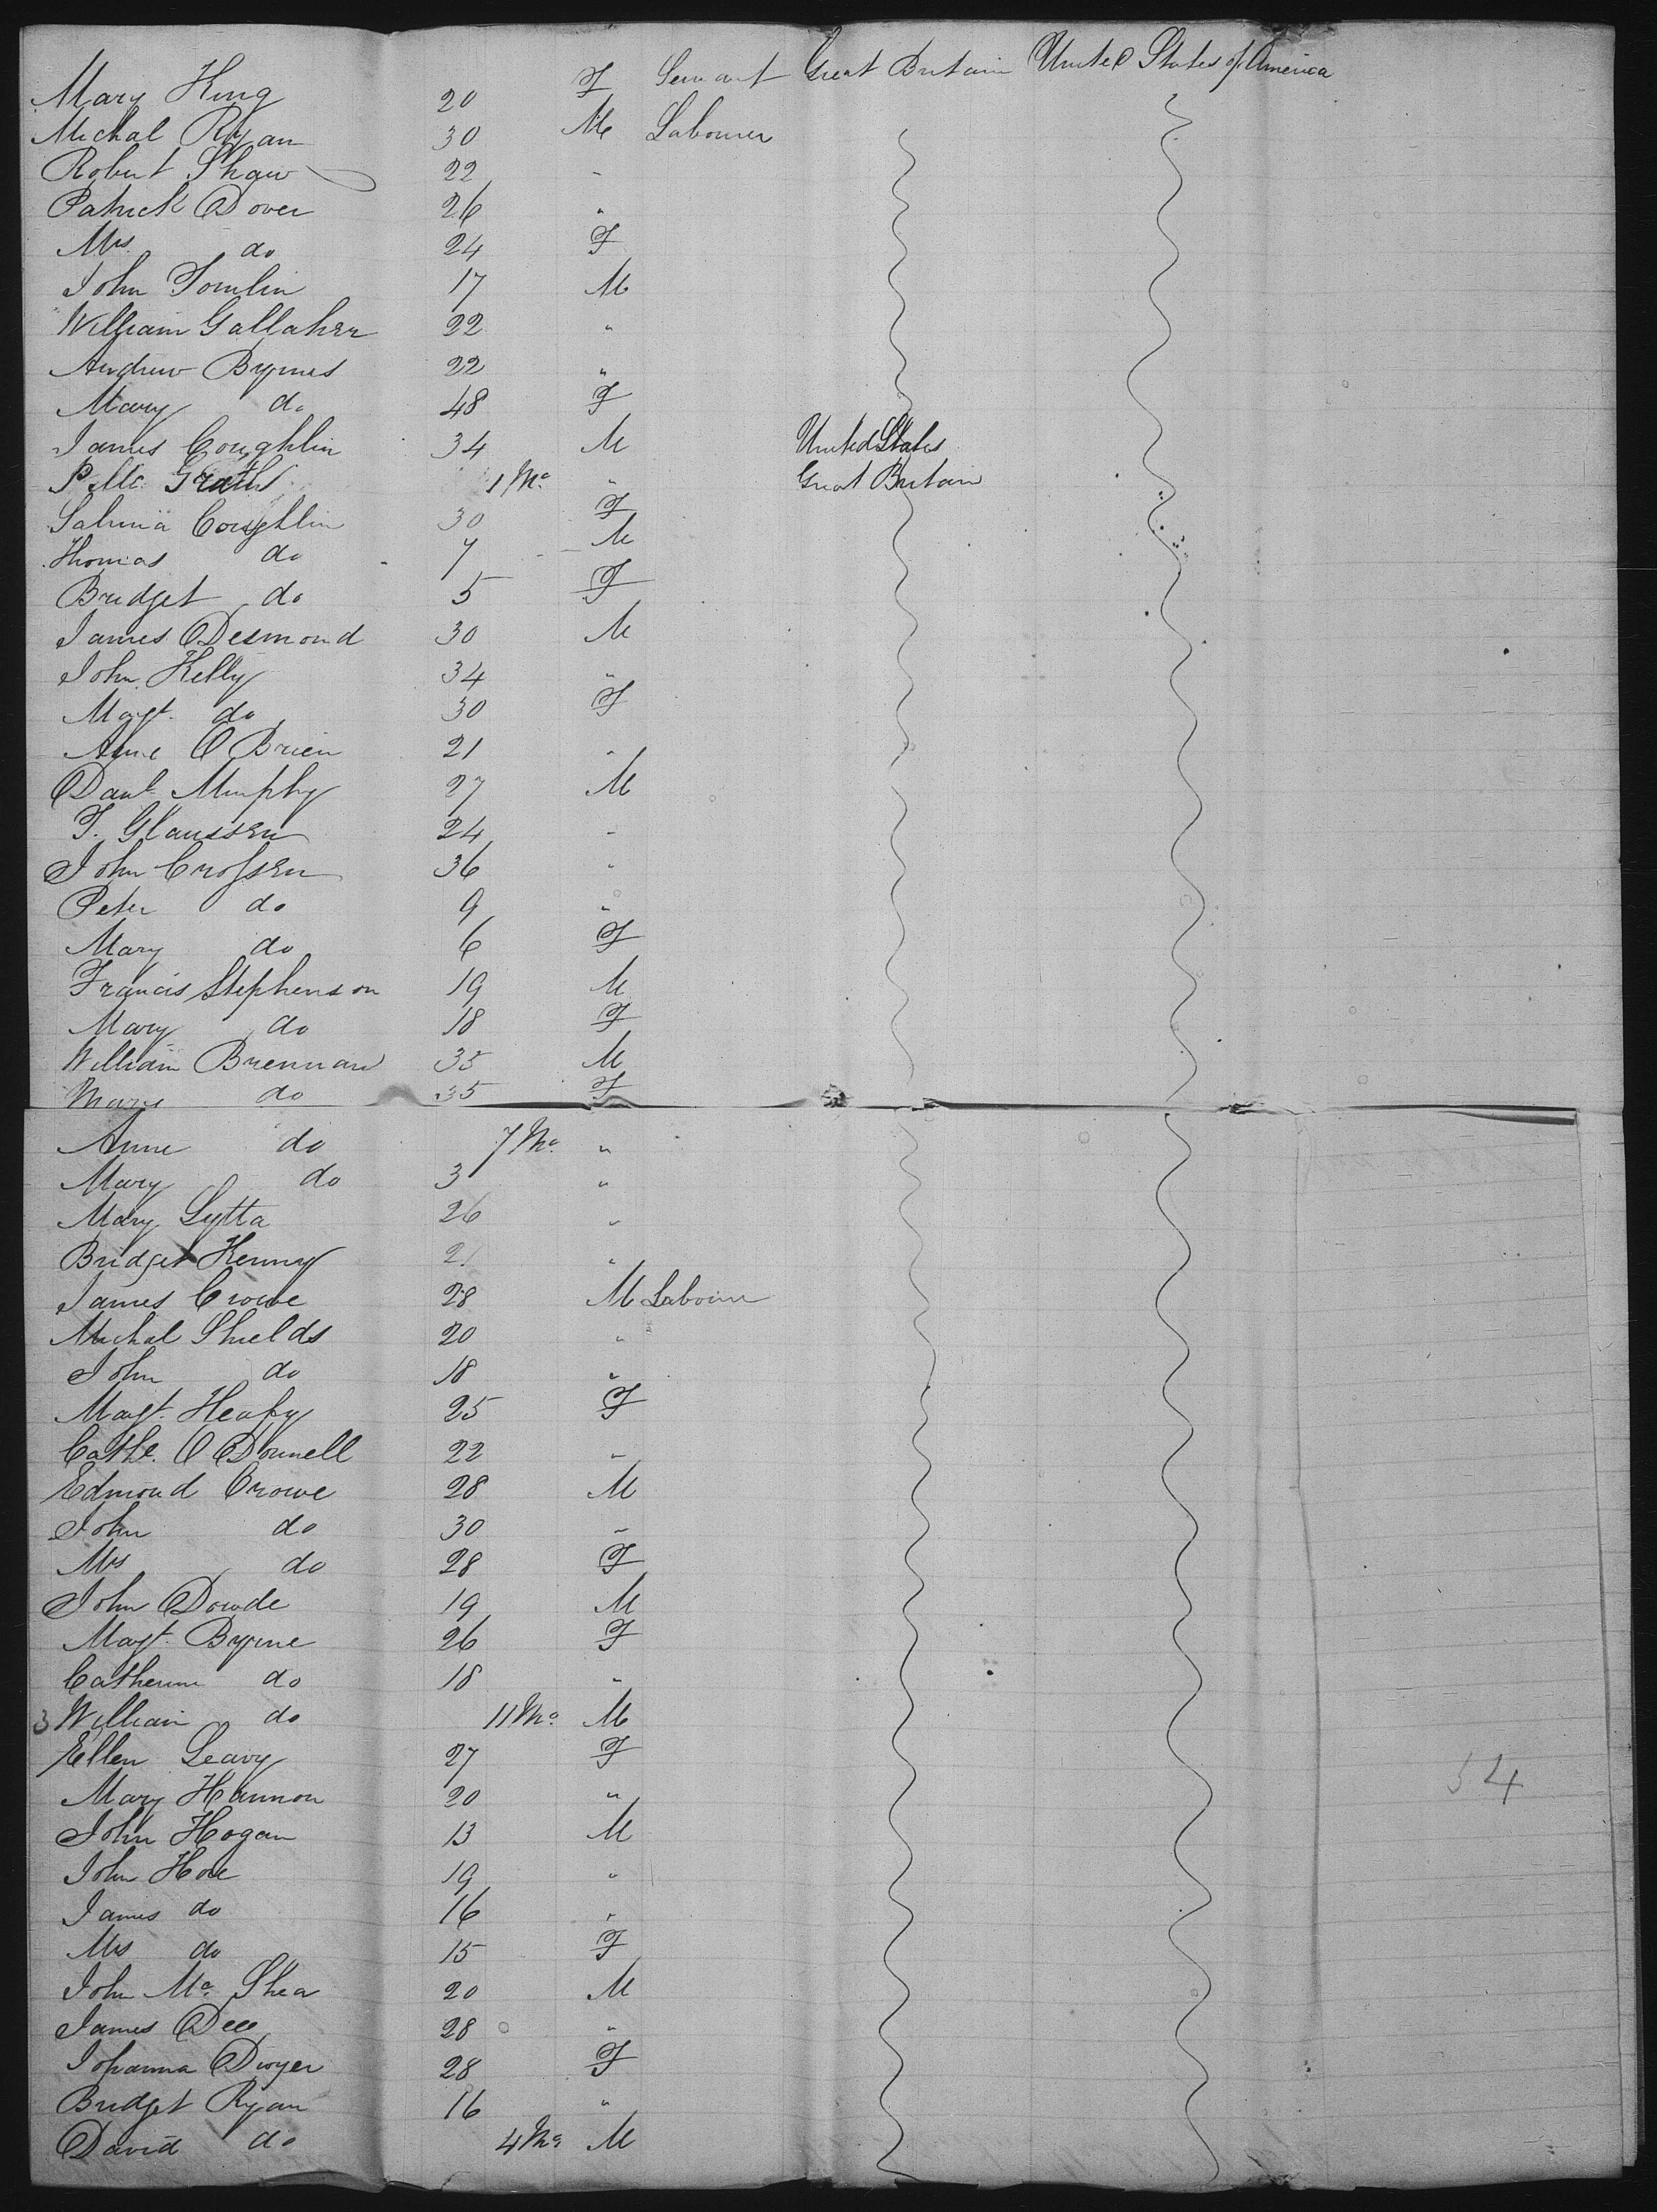 Mary King 20 F Servant Great Britain United States of America
Michal Ryan 30 M Labourer
Robert Shaw 22 "
Patrick Dover 26 "
Mrs do 24 F
John Tomlin 17 M
William Gallaher 22 "
Andrew Byrnes 22 "
Mary do 48 F
James Coughlin 34 M United States
P. Mc Grath 1 Mo "  Great Britain
Coughlin 30 F
Thomas do 7 M
Bridget do 5 F
James Desmond 30 M
John Kelly 34 "
Magt. do 30 F
Anne O Brien 21 "
Danl Murphy 27 M
T. Glaussen 24 "
John Crossen 36 "
Peter do 9 "
Mary do 6 F
Francis Stephenson 19 M
Mary do 18 F
William Brennan 35 M
Mary do 35 F
Anne do 7 Mo. "
Mary do 3 "
Mary Lytta 26 "
Bridget Kenny 21 "
James Crowe 28 M Labourer
Michal Shields 20 "
John do 18 "
Magt. Heafy 25 F
Cathe. O Donnell 22 "
Edmond Crowe 28 M
John do 30 "
Mrs do 28 F
John Dowde 19 M
Magt. Byrne 26 F
Catherine do 18 "
3 William do 11 Mo. M
Ellen Leavy 27 F
Mary Hannon 20 "
John Hogan 13 M
John Hoe 19 "
James do 16 "
Mrs do 15 F
John Mc. Shea 20 M
James Dee 28 "
Johanna Dwyer 28 F
Bridget Ryan 16 "
David do 4 Mo M
54